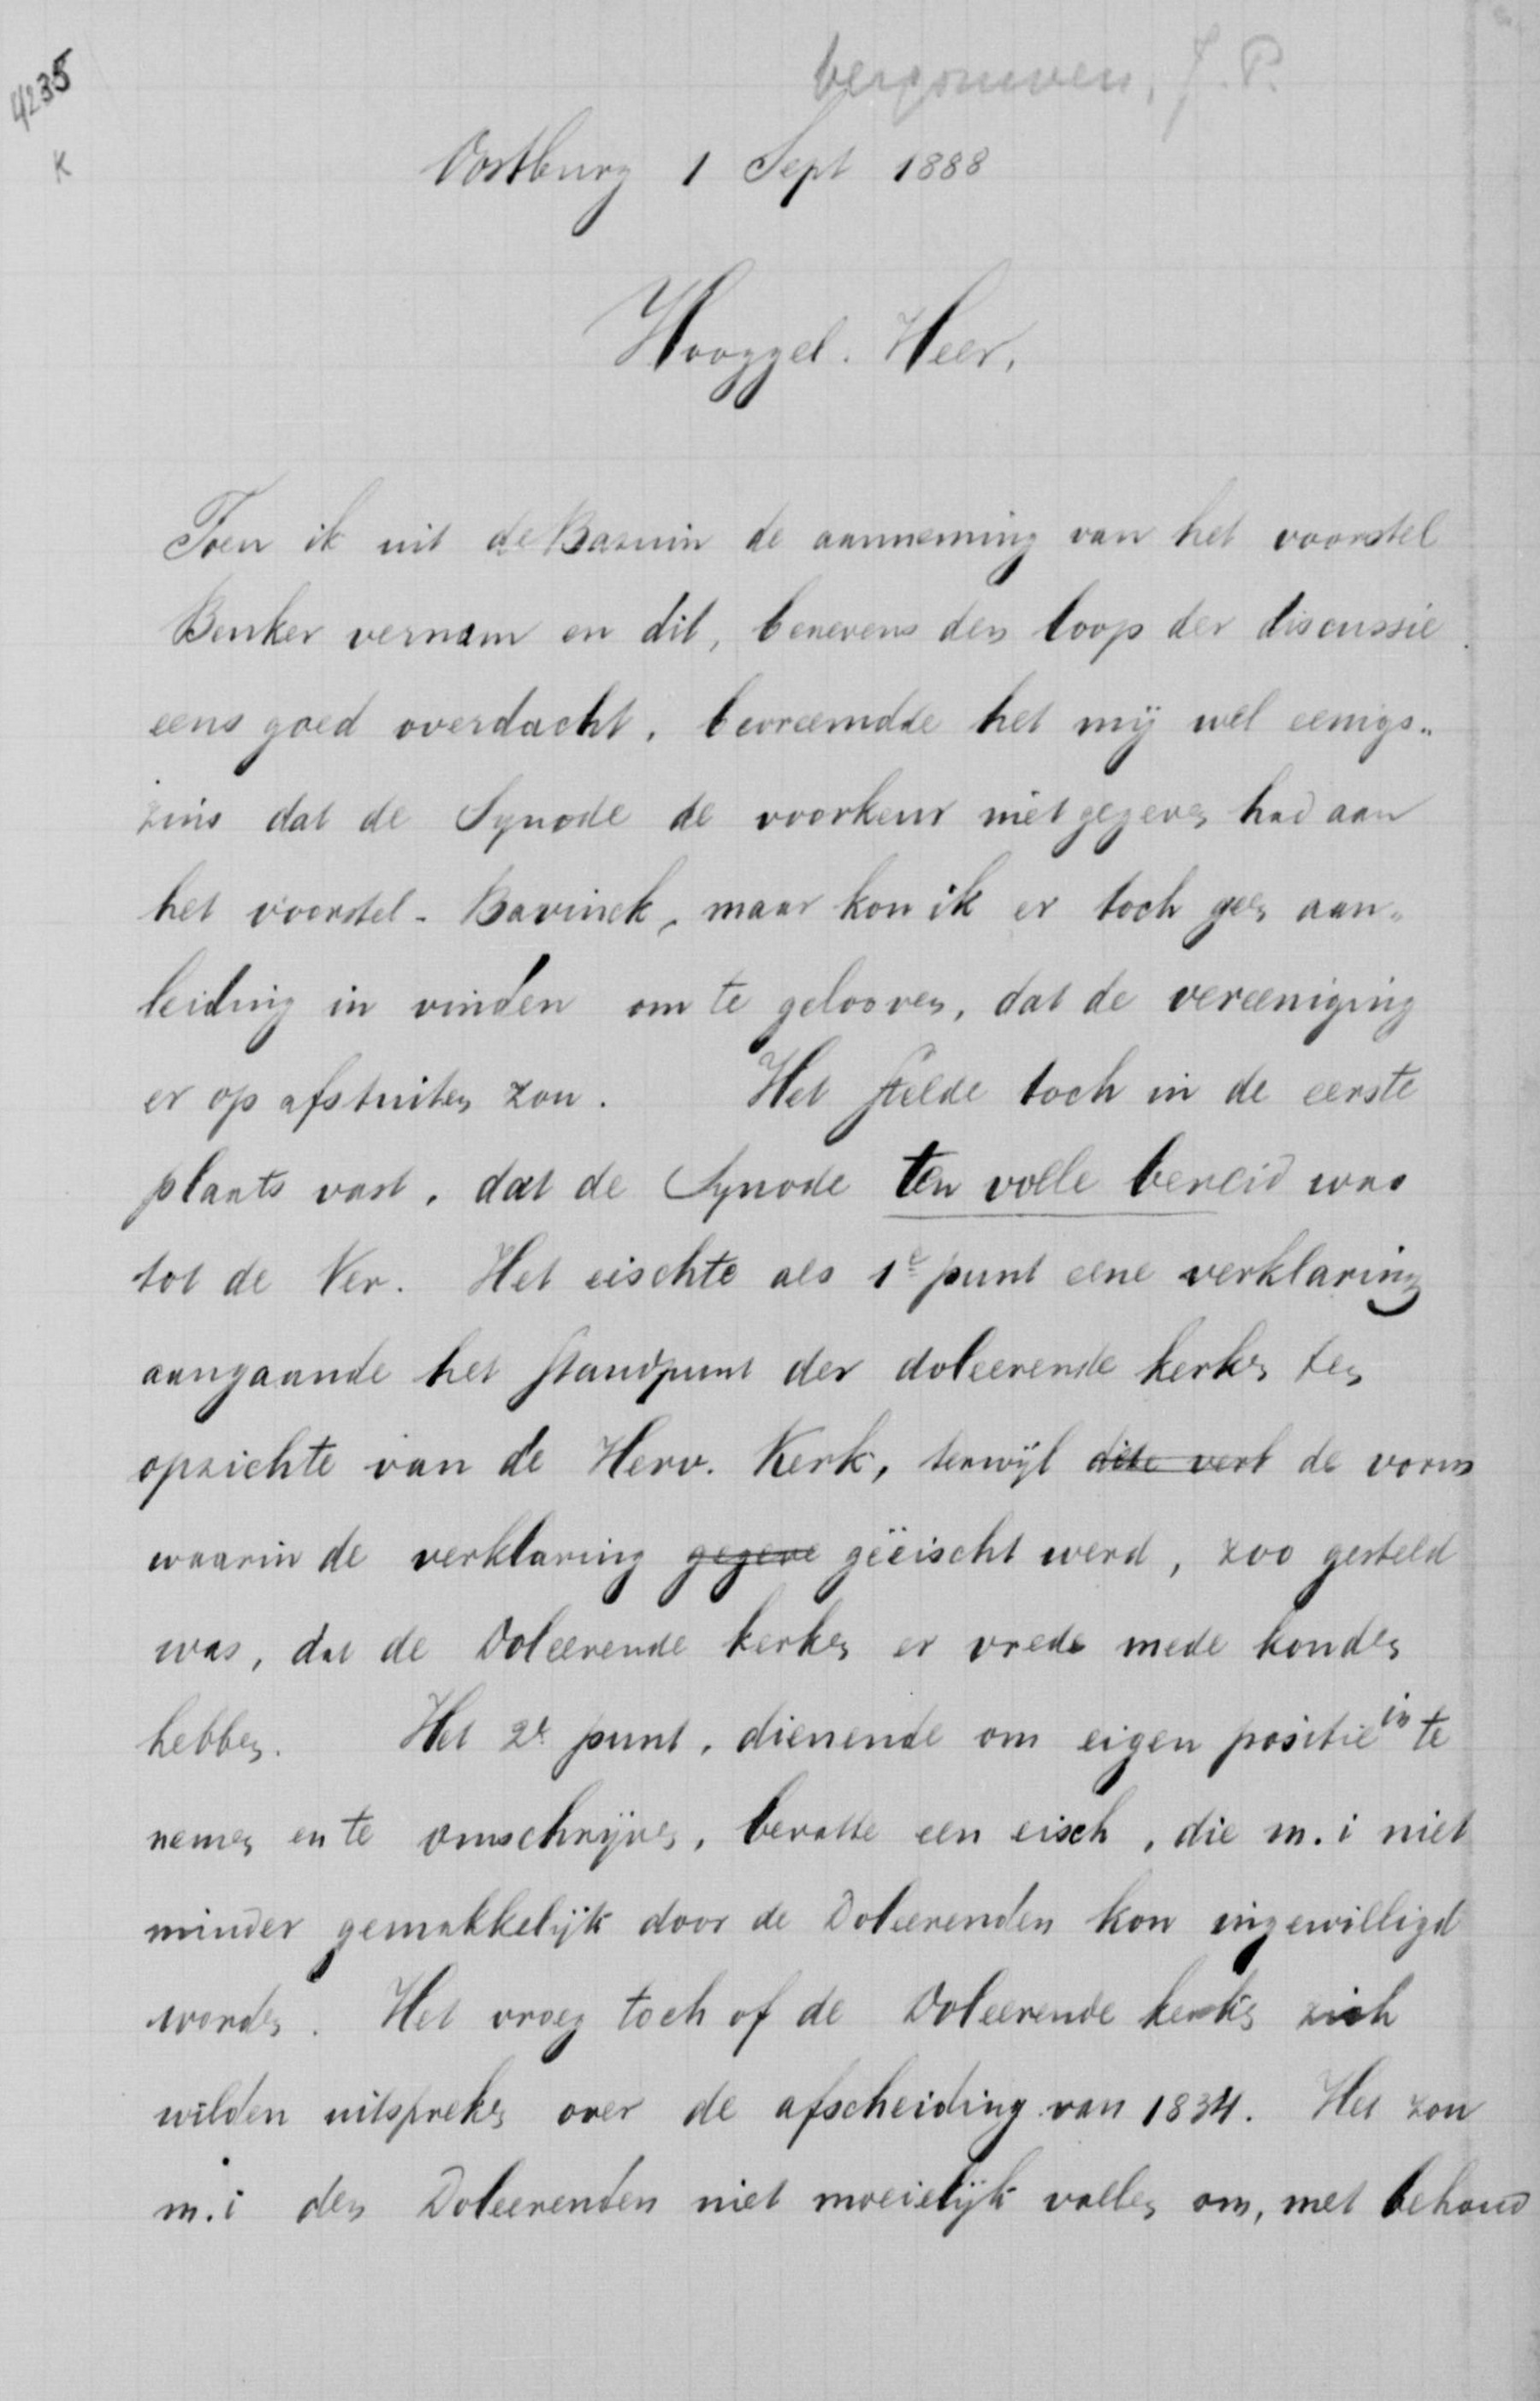 4235
K
Vergouwen, J. P.
Oostburg 1 Sept 1888
Hooggel. Heer,
Toen ik uit de Bazuin de aanneming van het voorstel
Beuker vernam en dit, benevens den loop der discussie
eens goed overdacht, bevreemdde het mij wel eenigs„
zins dat de Synode de voorkeur niet gegeven had aan
het voorstel-Bavinck, maar kon ik er toch geen aan„
leiding in vinden om te gelooven, dat de vereeniging
er op afstuiten zou. Het stelde toch in de eerste
plaats vast, dat de Synode ten volle bereid was
tot de Ver. Het eischte als 1e punt eene verklaring
aangaande het standpunt der doleerende kerken ten
opzichte van de Herv. Kerk, terwijl deze verk de vorm
waarin de verklaring gegeve geëischt werd, zoo gesteld
was, dat de Doleerende kerken er vrede mede konden
hebben. Het 2e punt, dienende om eigen positie in te
nemen en te omschrijven, bevatte een eisch, die m.i niet
minder gemakkelijk door de Doleerenden kon ingewilligd
worden. Het vroeg toch of de Doleerende kerken zich
wilden uitspreken over de afscheiding van 1834. Het zou
m.i den Doleerenden niet moeielijk vallen om, met behoud